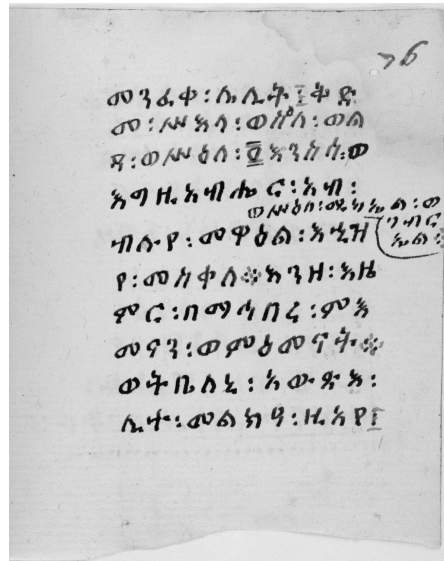 76
መንፈቀ፡ሌሊት፩ቅድ
መ፡ሥእላ፡ወለ፡ወል
ዳ፡ወሥዕለ፡፬እንስሳ፡ወ
እግዚአብሔር፡አብ፡
ወሥዕለ፡ሚካኤል፡ወ
ገብር
ኤል፡
ብሉየ፡መዋዕል፡እኂዝ
የ፡መስቀለ፨እንዘ፡እዜ
ምር፡በማኅበረ፡ምእ
መናን፡ወምዕመናት፨
ወትቤለኒ፡አውጽእ፡
ሊተ፡መልክዓ፡ዚአየ፩